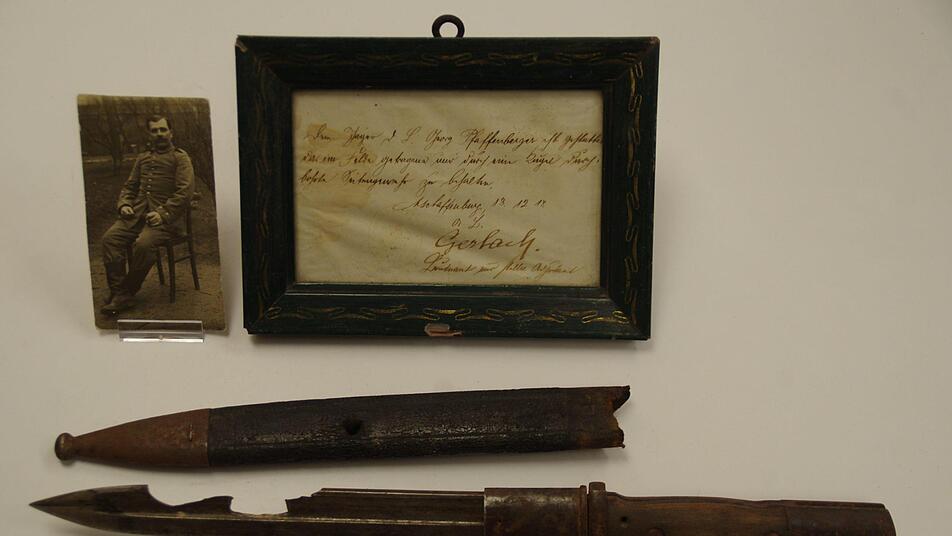 Dem Jäger d. L. Georg Pfaffenberger ist gestattet
das im Felde getragene und durch eine Kugel durch-
bohrte Seitengewehr zu behalten.
Aschaffenburg, 13. 12.
Gerlach.
Leutnant und Adjutant